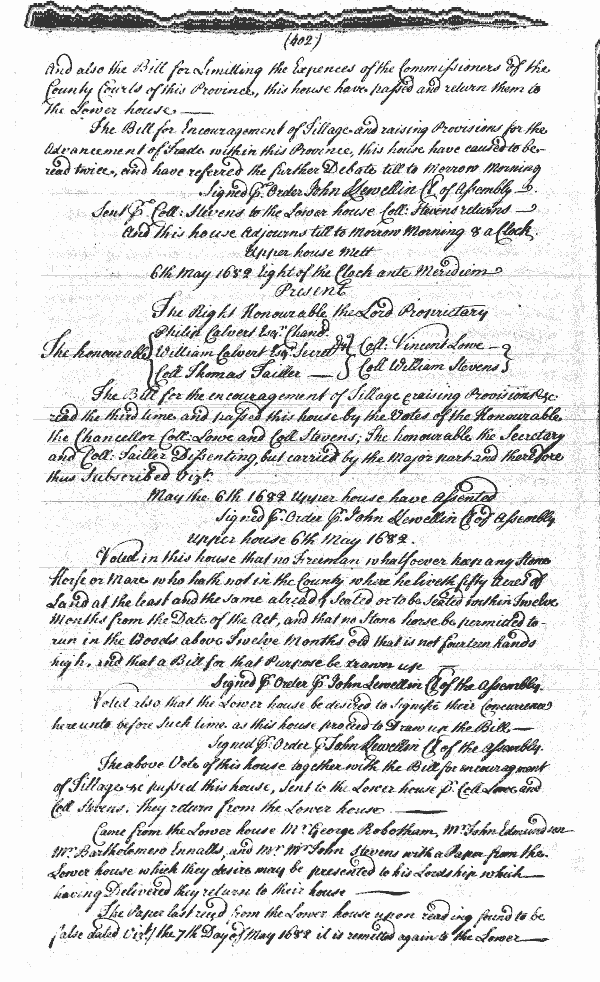 (402)
And also the Bill for Limitting the Expences of the Commissioners of the
County Courts of this Province, this house have passed and return them to
the Lower house
The Bill for Encouragement of Tillage and raising Provisions for the
Advancement of Trade within this Province, this house have caused to be
read twice, and have referred the further Debate till to Morrow Morning
Signed p. Order John Llewellin Cl of Assembly
Sent p. Coll: Stevens to the Lower house Coll: Stevens returns
And this house Adjourns till to Morrow Morning 8 a Clock
Upper house Mett
6th May 1682 Eight of the Clock ante Meridiem
Present
The Right Honourable the Lord Proprietary
Philip Calvert Esqr. Chanc.
The honourable William Calvert Esqr. Secret.ry Coll: Vincent Lowe
Coll Thomas Tailler Coll William Stevens
The Bill for the encouragement of Tillage & raising Provisions &c
read the third time and passed this house by the Votes of the Honourable
the Chancellor Coll: Lowe and Coll Stevens; The honourable the Secretary
and Coll: Tailler Dissenting, but carried by the Major part and therefore
thus Subscribed Vizt.
May the 6th 1682 Upper house have Assented
Signed p. Order p. John Llewellin Cl of Assembly
Upper house 6th May 1682.
Voted in this house that no Freeman whatsoever keep any Stone
Horse or Mare who hath not in the County where he liveth fifty Acres of
Land at the least and the same already Seated or to be Seated within Twelve
Months from the Date of the Act, and that no Stone horse be permitted to
run in the Woods above Twelve Months old that is not fourteen hands
high, and that a Bill for that Purpose be drawn up
Signed p. Order p. John Llewellin Cl of the Assembly.
Voted also that the Lower house be desired to Signifie their Concurrence
hereunto before Such time as this house proceed to Draw up the Bill
Signed p. Order p. John Llewellin Cl of the Assembly.
The above Vote of this house together with the Bill for encouragement
of Tillage &c passed this house, Sent to the Lower house p. Coll Lowe and
Coll Stevens, they return from the Lower house
Came from the Lower house Mr. George Robotham, Mr. John Edmundson
Mr. Bartholomew Ennalls, and Mr. Mr. John Stevens with a Paper from the
Lower house which they desire may be presented to his Lordship which
having Delivered they return to their house
The Paper last recd. from the Lower house upon reading found to be
false dated Vizt. the 7th Day of May 1682 it is remitted again to the Lower